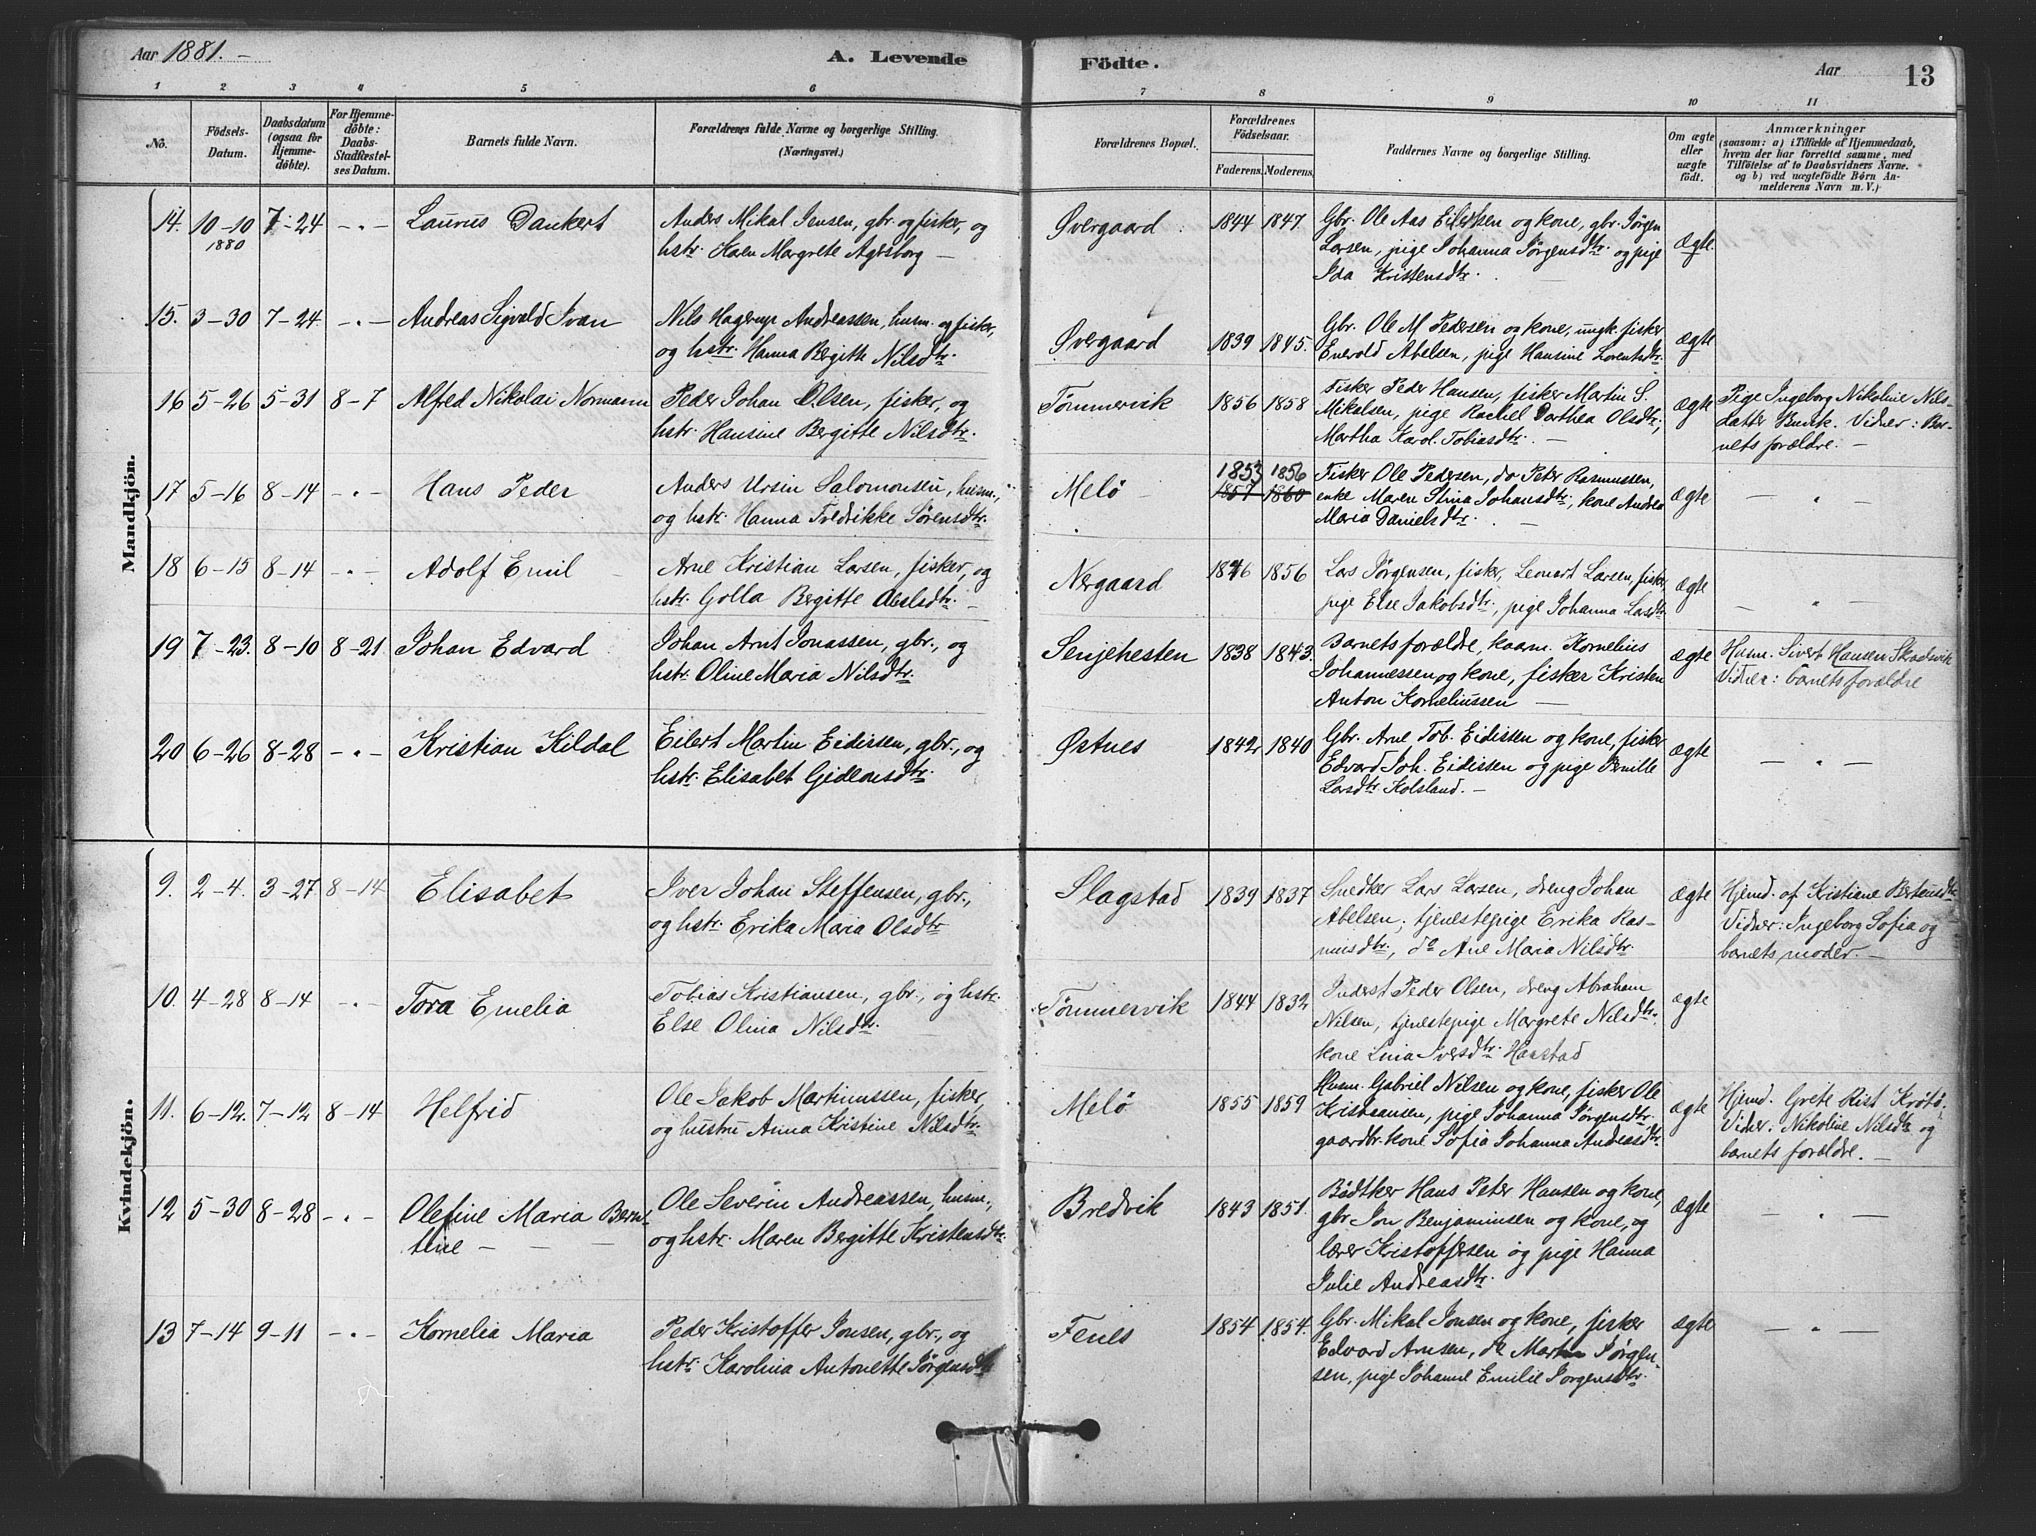 Aar 1881. –
A. Levende
Födte.
Aar
13
1 2 3 4 5 6 7 8 9 10 11
No.
Födsels-
Datum.
Daabsdatum
(ogsaa for
Hjemme-
döbte).
For Hjemme-
döbte:
Daabs-
Stadfæstel-
ses Datum.
Barnets fulde Navn.
Forældrenes fulde Navne og borgerlige Stilling.
(Næringsvei.)
Forældrenes Bopæl.
Forældrenes
Födselsaar.
Faderens. Moderens.
Faddernes Navne og borgerlige Stilling.
Om ægte
eller
uægte
födt.
Anmærkninger
(saasom: a) i Tilfælde af Hjemmedaab,
hvem der har forrettet samme, med
Tilföielse af to Daabsvidners Navne.
og b) ved uægtefödte Börn An-
melderens Navn m. V.)
Mandkjön.
14. 10–10 7–24 – " – Laurus Dankert
1880
Anders Mikal Jensen, gbr. og fisker, og
hstr. Karen Margrete Agesborg –
Øvergaard 1844 1847
Gbr. Ole Aas Eilertsen og kone, gbr. Jørgen
Larsen, pige Johanna Jørgensdtr. og pige
Ida Kristensdtr.
ægte
15. 3–30 7–24 – " – Andreas Sigvald Ivan
Nils Hagerup Andreassen, husm. og fisker,
og hstr. Hanna Bergith Nilsdtr.
Øvergaard 1839 1845.
Gbr. Ole M Pedersen og kone, ungk. fisker
Enevold Abelsen, pige Hansine Lorentsdtr.
ægte
16 5–26 5–31 8–7 Alfred Nikolai Normann
Peder Johan Olsen, fisker, og
hstr. Hansine Bergitte Nilsdtr.
Tömmervik 1856 1858
Fisker Peder Hansen, fisker Martin S.
Mikelsen, pige Rachel Dorthea Olsdtr.,
Martha Karol. Tobiasdtr. –
ægte
Pige Ingeborg Nikoline Nils-
datter Bunk. Vidner: Bar-
nets forældre. –
17 5–16 8–14 – " – Hans Peder
Anders Ursin Salomonsen, husm.,
og hstr. Hanna Fredrikke Sörensdtr.
Melö –
1853 1856
1857 1860
Fisker Ole Pedersen, do Peter Rasmussen,
enke Maren Stina Johansdtr., kone Andrea
Maria Danielsdtr. –
ægte – " –
18 6–15 8–14 – " – Adolf Emil
Arne Kristian Larsen, fisker, og
hstr. Golla Bergitte Abelsdtr. –
Nergaard 1846 1856
Lars Jørgensen, fisker, Leonart Larsen, fisker,
pige Else Jakobsdtr., pige Johanna Larsdtr.
ægte – " –
19 7–23. 8–10 8–21 Johan Edvard
Johan Arnt Jonassen, gbr., og
hstr. Oline Maria Nilsdtr.
Senjehesten 1838 1843.
Barnets forældre, kaarm. Kornelius
Johannessen og kone, fisker Kristen
Anton Korneliussen –
ægte
Husm. Sivert Hansen Skrolsvik
Vidner: barnets forældre
20 6–26 8–28 – " – Kristian Kildal
Eilert Martin Eidissen, gbr., og
hstr. Elisabet Gideonsdtr.
Østnes 1842 1840
Gbr. Arne Tob. Eidissen og kone, fisker
Edvard Joh. Eidissen og pige Pernille
Larsdtr. Kolsland. –
ægte – " –
Kvindekjön.
9. 2–4. 3–27 8–14 Elisabet
Iver Johan Steffensen, gbr.,
og hstr. Erika Maria Olsdtr
Slagstad 1839 1837
Snedker Lars Larsen, dreng Johan
Abelsen, tjenestepige Erika Ras-
musdtr., do Ane Maria Nilsdtr.
ægte
Hjemd. af Kristiane Berteusdtr
Vidner: Ingeborg Sofia og
barnets moder. –
10. 4–28 8–14 – " – Tora Emelia
Tobias Kristiansen, gbr., og hstr.
Else Olina Nilsdtr.
Tömmervik 1844 1832
Inderst Peder Olsen, dreng Abraham
Nilsen, tjenestepige Margrete Nilsdtr.,
kone Lina Iversdtr. Haustad
ægte
11. 6–12. 7–12 8–14 Helfrid
Ole Jakob Martinussen, fisker,
og hustru Anna Kristine Nilsdtr.
Melö 1855 1859
Husm. Gabriel Nilsen og kone, fisker Ole
Kristiansen, pige Johanna Jörgensdtr.
gaardbr.kone Sofia Johanna Andreasdtr.
ægte
Hjemd. Grete Rist Krötö.
Vidner: Nikoline Nilsdtr og
barnets forældre. –
12 5–30 8–28 – " – Olefine Maria Bernt-
tine – – –
Ole Severin Andreassen, husm.,
og hstr. Maren Bergitte Kristensdtr.
Bredvik 1843 1851.
Bödtker Hans Peter Hansen og kone,
gbr. Jon Benjaminsen og kone, og
lærer Kristoffersen og pige Hanna
Julie Andreasdtr.
ægte – " –
13 7–14 9–11 – " – Kornelia Maria
Peder Kristoffer Jonsen, gbr., og
hstr. Karolina Antonette Jörgensdtr
Fenes 1854 1854.
Gbr. Mikal Jonsen og kone, fisker
Edvard Arnsen, do Martin Jörgen-
sen, pige Johanne Emilie Jörgensdtr.
ægte – " –